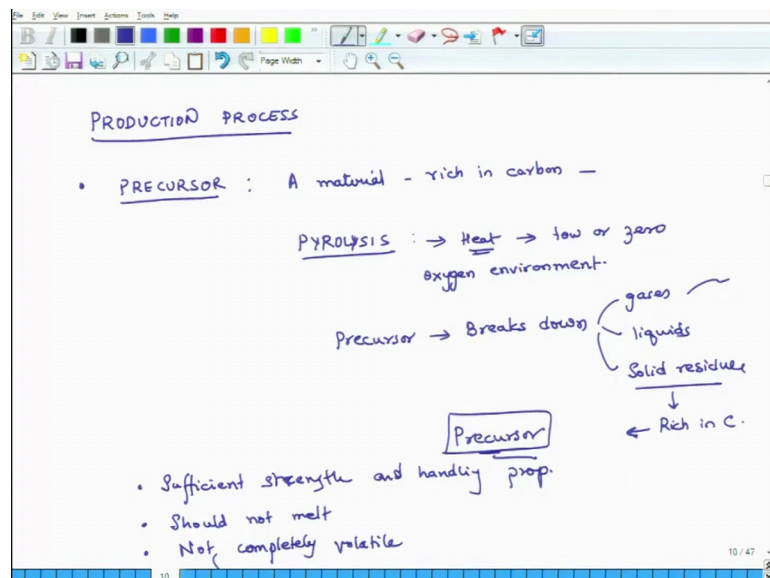 File Edit View Insert Actions Tools Help
B I
Page Width
PRODUCTION PROCESS
• PRECURSOR : A material - rich in carbon —
PYROLYSIS : → Heat → low or zero
oxygen environment.
gases
Precursor → Breaks down
liquids
Solid residue
↓
← Rich in C.
Precursor
• Sufficient strength and handling prop.
• Should not melt
• Not completely volatile
10 / 47
10